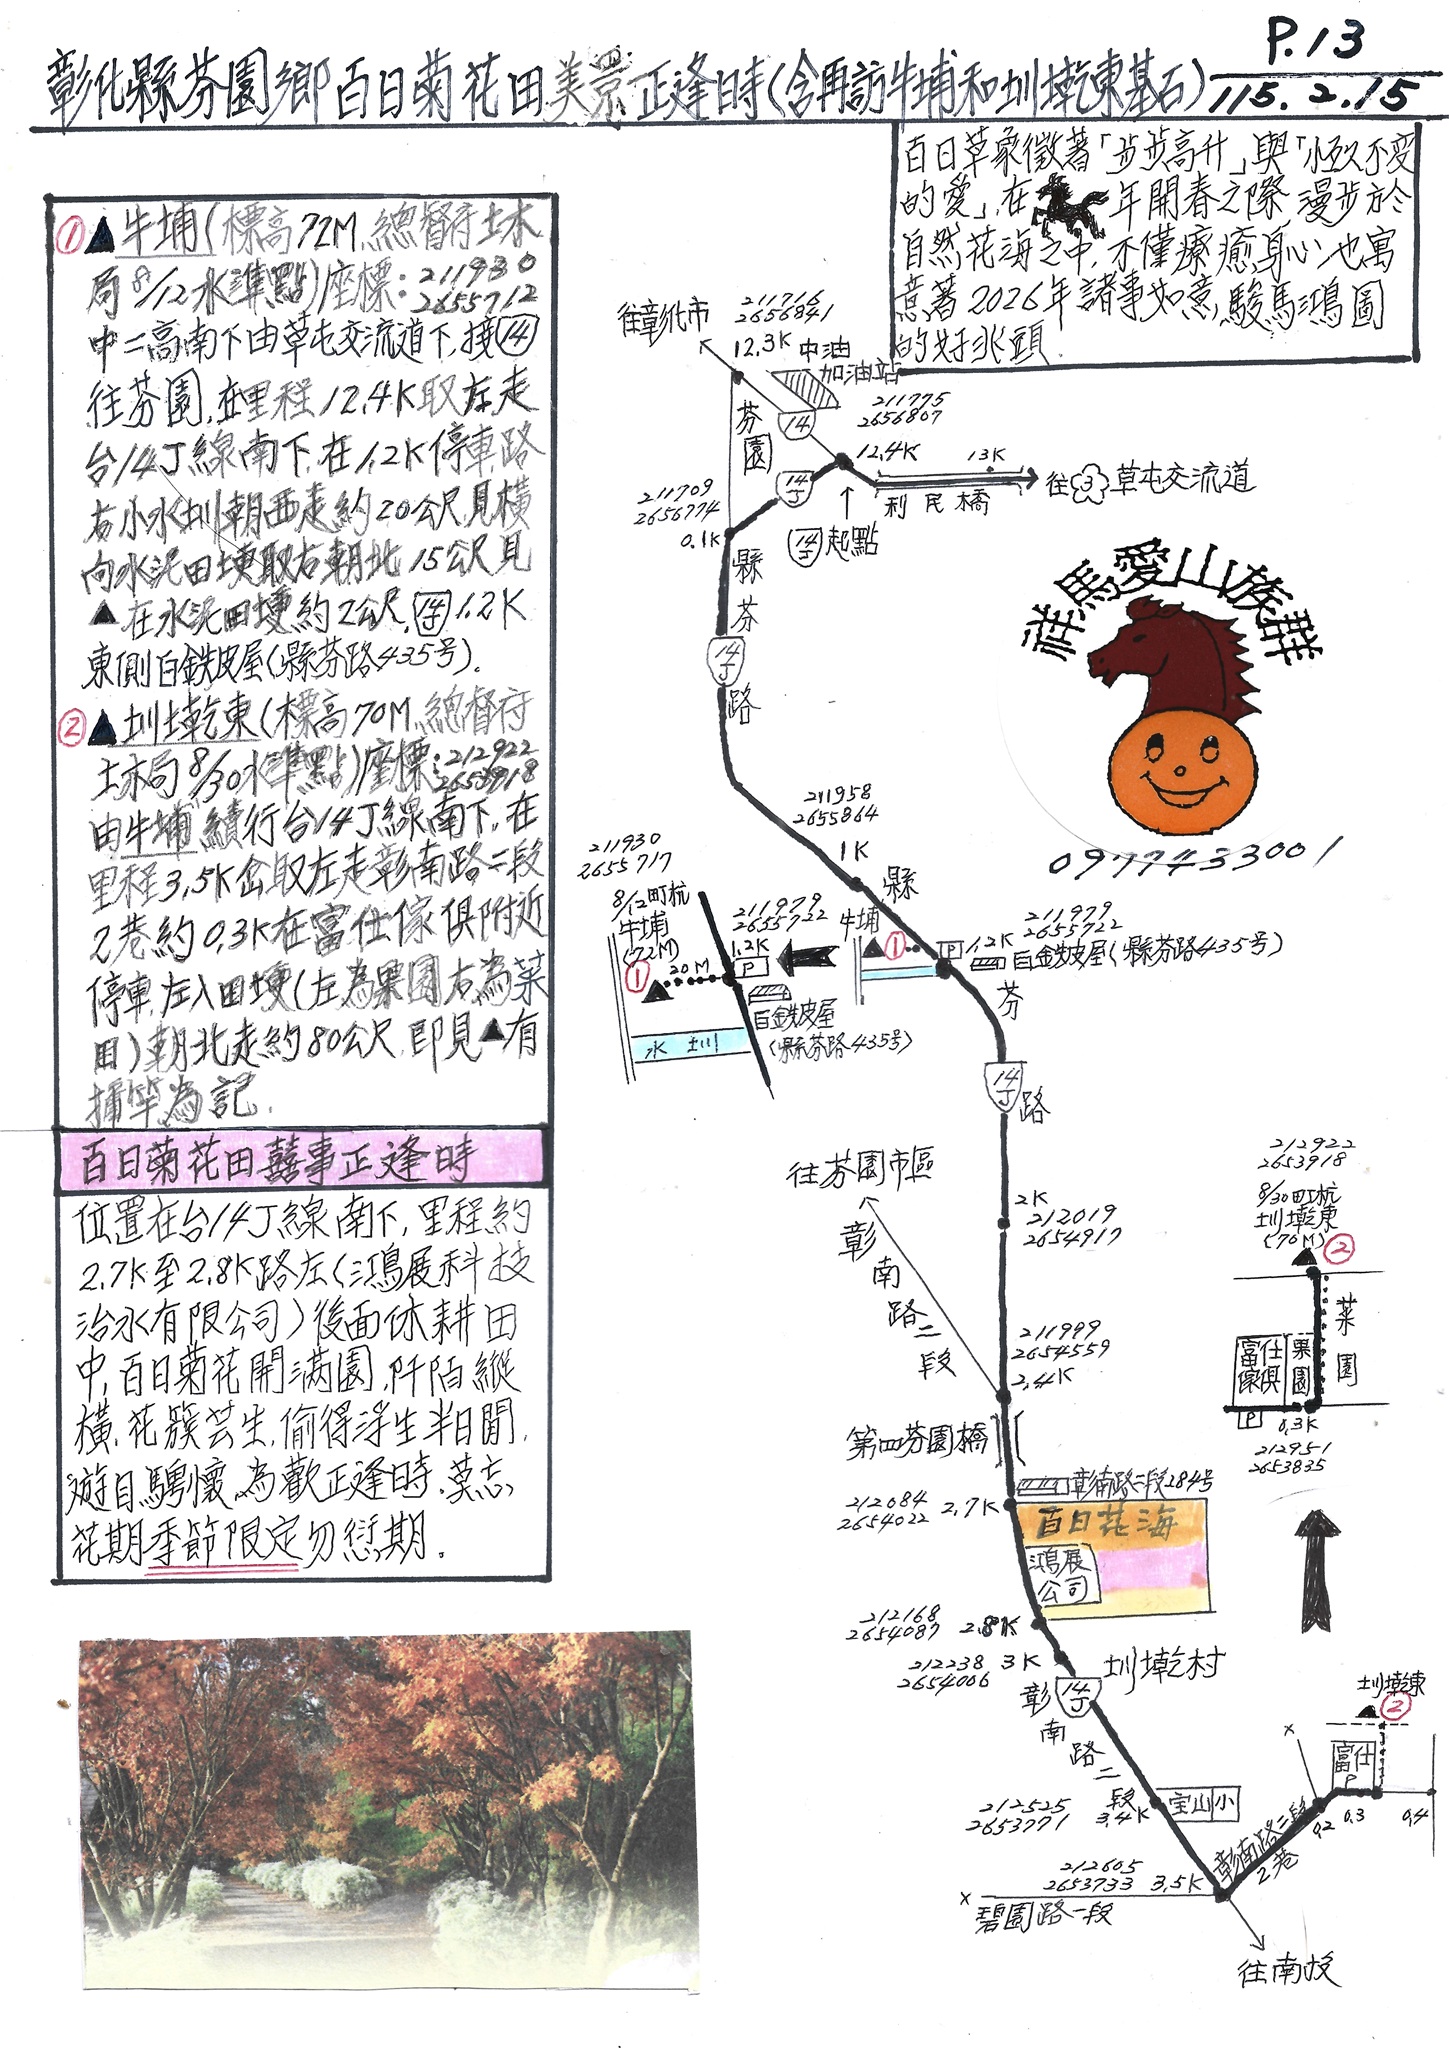 P.13
彰化縣芬園鄉百日菊花田美景正逢時(含再訪牛埔和圳墘東基石)
115.2.15
百日草象徵著「步步高升」與「恒久不變
的愛」,在 年開春之際,漫步於
自然花海之中,不僅療癒身心,也寓
意著2026年諸事如意,駿馬鴻圖
的好兆頭.
① ▲牛埔(標高72M,總督府土木
局8/12水準點)座標:211930
2655712
中二高南下由草屯交流道下,接14
往芬園,在里程12.4K取左走
台14丁線南下,在1.2K停車,路
右小水圳朝西走約20公尺,見橫
向水泥田埂取右朝北15公尺見
▲在水泥田埂約2公尺,14丁1.2K
東側白鉄皮屋(縣芬路435号).
② ▲圳墘東(標高70M,總督府
土木局8/30水準點)座標:212922
2653918
由牛埔續行台14丁線南下,在
里程3.5K岔取左走彰南路二段
2巷約0.3K在富仕傢俱附近
停車,左入田埂(左為果園右為菜
田)朝北走約80公尺,即見▲有
插竿為記.
百日菊花田囍事正逢時
位置在台14丁線南下,里程約
2.7K至2.8K路左(鴻展科技
治水有限公司)後面休耕田
中,百日菊花開滿園,阡陌縱
橫,花簇芸生,偷得浮生半日閒,
遊目騁懷,為歡正逢時,莫忘
花期季節限定勿愆期.
往彰化市
211716
2656841
12.3K
中油
加油站
211775
2656807
芬園
14
12.4K
13K
往3草屯交流道
利民橋
14丁
14丁起點
211709
2656774
0.1K
縣芬路
14丁
祥馬愛山族群
0977433001
211958
2655864
1K
縣芬路
211930
2655717
8/12町杭
牛埔
(72M)
①
20M
211979
2655722
1.2K
P
白鉄皮屋
(縣芬路435号)
水圳
牛埔
①
P
1.2K
211979
2655722
白鉄皮屋(縣芬路435号)
14丁
往芬園市區
彰南路二段
2K
212019
2654917
211999
2654559
2.4K
第四芬園橋
彰南路二段284号
212084
2654022
2.7K
百日花海
鴻展
公司
212168
2654087
2.8K
212238
2654006
3K
圳墘村
14丁
彰南路二段
212525
2653771
3.4K
宝山小
212605
2653733
3.5K
碧園路一段
彰南路二段
2巷
往南投
212922
2653918
8/30町杭
圳墘東
(70M)
②
菜園
富仕傢俱
果園
P
0.3K
212951
2653835
圳墘東
②
富仕
P
0.2
0.3
0.4